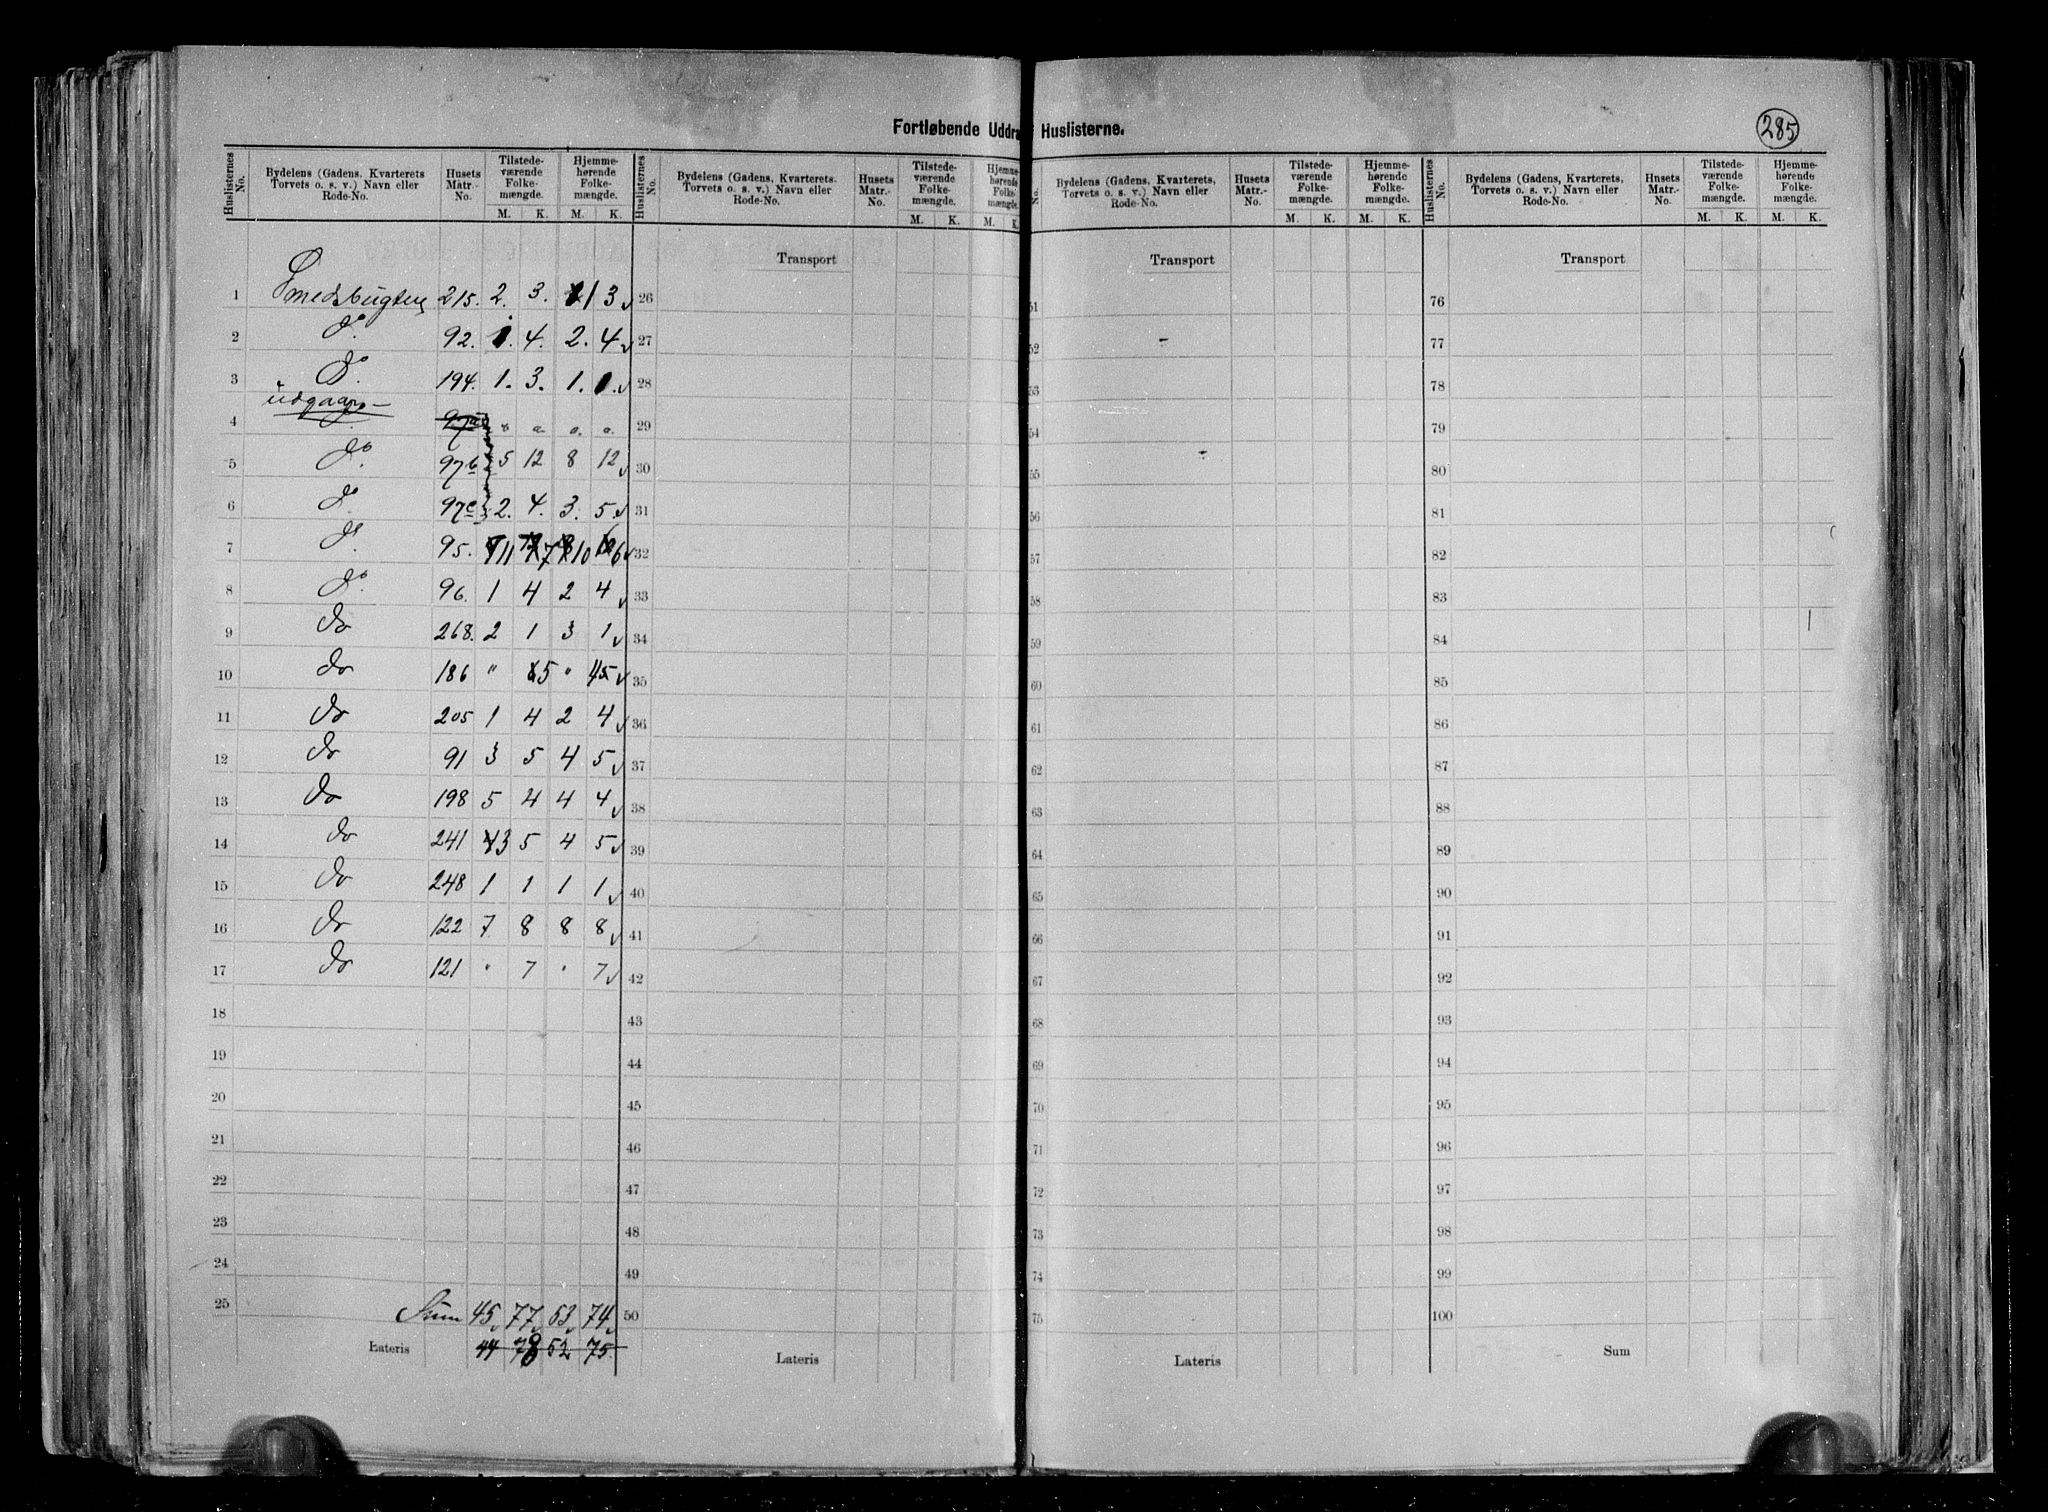 285
Fortløbende Uddra Huslisterne.
Huslisternes No. Bydelens (Gadens, Kvarterets Torvets o. s. v.) Navn eller Rode-No. Husets Matr.-No. Tilstede-værende Folke-mængde. M. K. Hjemme-hørende Folke-mængde. M. K.
1 Smedsbugten 215. 2. 3. 1 3
2 do. 92. 1. 4. 2. 4
3 do. 194. 1. 3. 1.
udgaar
4 97a " " " "
5 do. 97b 5 12 8 12
6 do. 97c 2. 4. 3. 5.
7 do. 95. 11 7 10 6
8 do. 96. 1 4 2 4
9 do 268. 2 1 3 1
10 do 186 " 5 " 5
11 do 205 1 4 2 4
12 do 91 3 5 4 5
13 do 198 5 4 4 4
14 do 241 3 5 4 5
15 do 248 1 1 1 1
16 do 122 7 8 8 8
17 do 121 " 7 " 7
18
19
20
21
22
23
24
25 Sum 45 77 53 74
Lateris 44 78 52 75
Huslisternes No. Bydelens (Gadens, Kvarterets, Torvets o. s. v.) Navn eller Rode-No. Husets Matr.-No. Tilstede-værende Folke-mængde. M. K. Hjemme-hørende Folke-mængde. M. K.
Transport
26
27
28
29
30
31
32
33
34
35
36
37
38
39
40
41
42
43
44
45
46
47
48
49
50
Lateris
No. Bydelens (Gadens, Kvarterets, Torvets o. s. v.) Navn eller Rode-No. Husets Matr.-No. Tilstede-værende Folke-mængde. M. K. Hjemme-hørende Folke-mængde. M. K.
Transport
51
52
53
54
55
56
57
58
59
60
61
62
63
64
65
66
67
68
69
70
71
72
73
74
75
Lateris
Huslisternes No. Bydelens (Gadens, Kvarterets, Torvets o. s. v.) Navn eller Rode-No. Husets Matr.-No. Tilstede-værende Folke-mængde. M. K. Hjemme-hørende Folke-mængde. M. K.
Transport
76
77
78
79
80
81
82
83
84
85
86
87
88
89
90
91
92
93
94
95
96
97
98
99
100
Sum